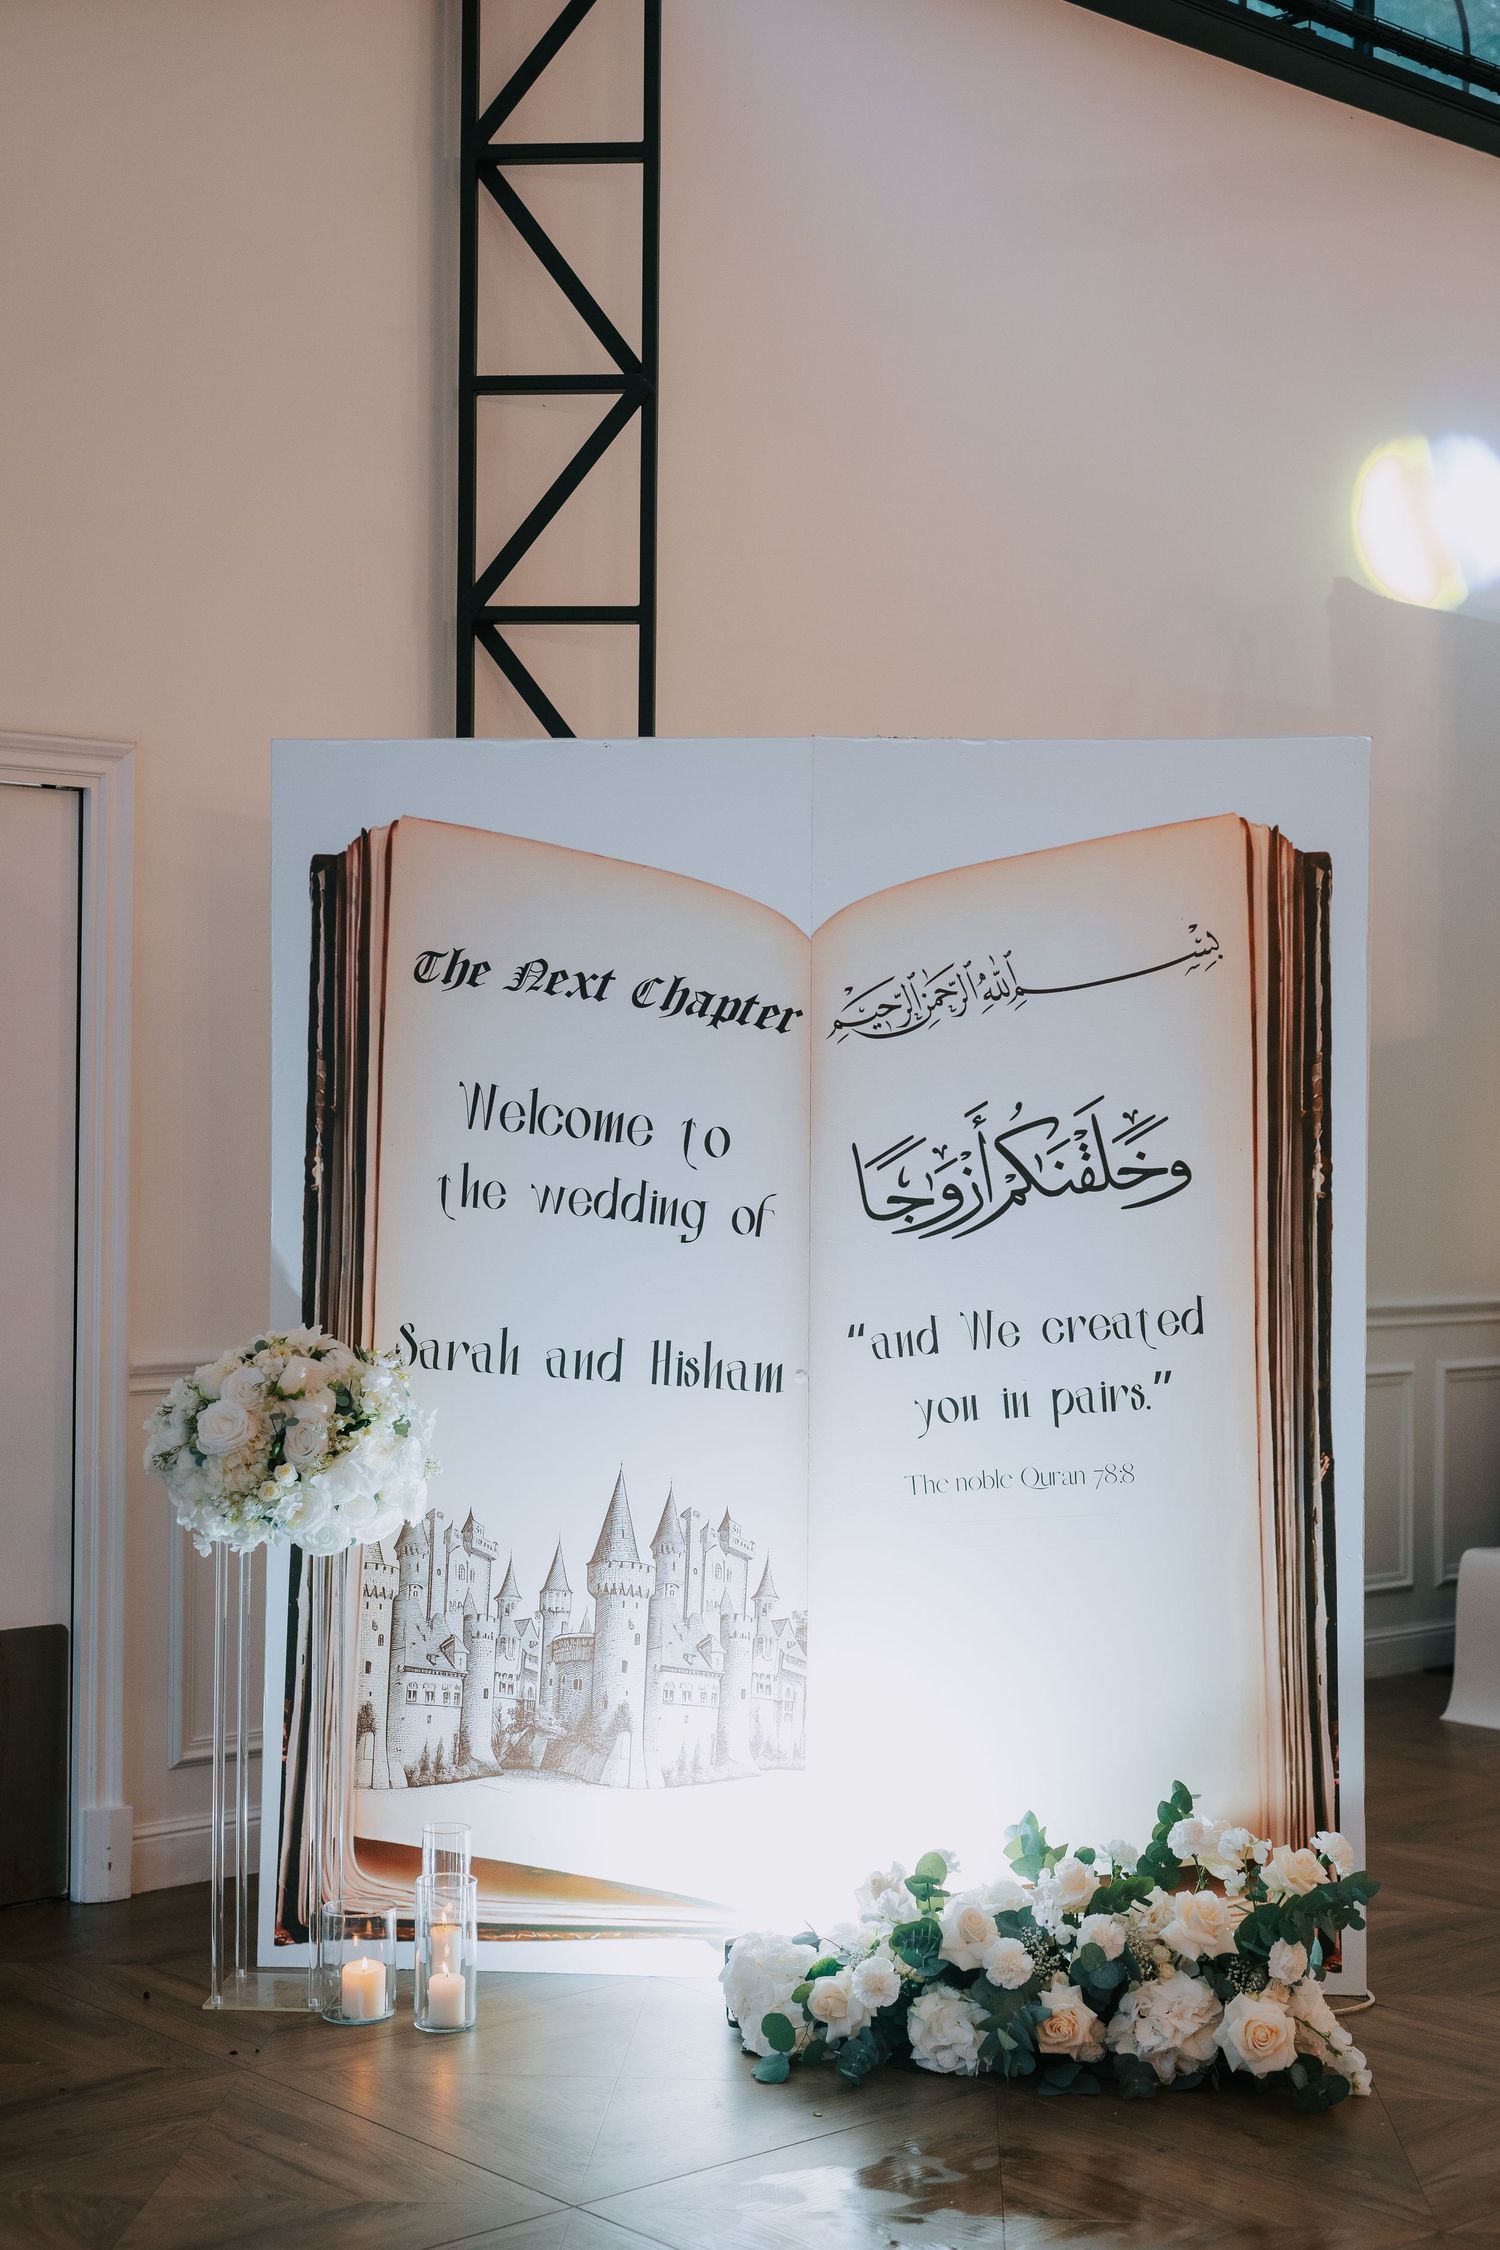 The Next Chapter
Welcome to
the wedding of
Sarah and Hisham
بِسْمِ ٱللَّهِ ٱلرَّحْمَٰنِ ٱلرَّحِيمِ
وَخَلَقْنَاكُمْ أَزْوَاجًا
“and We created
you in pairs.”
The noble Quran 78:8